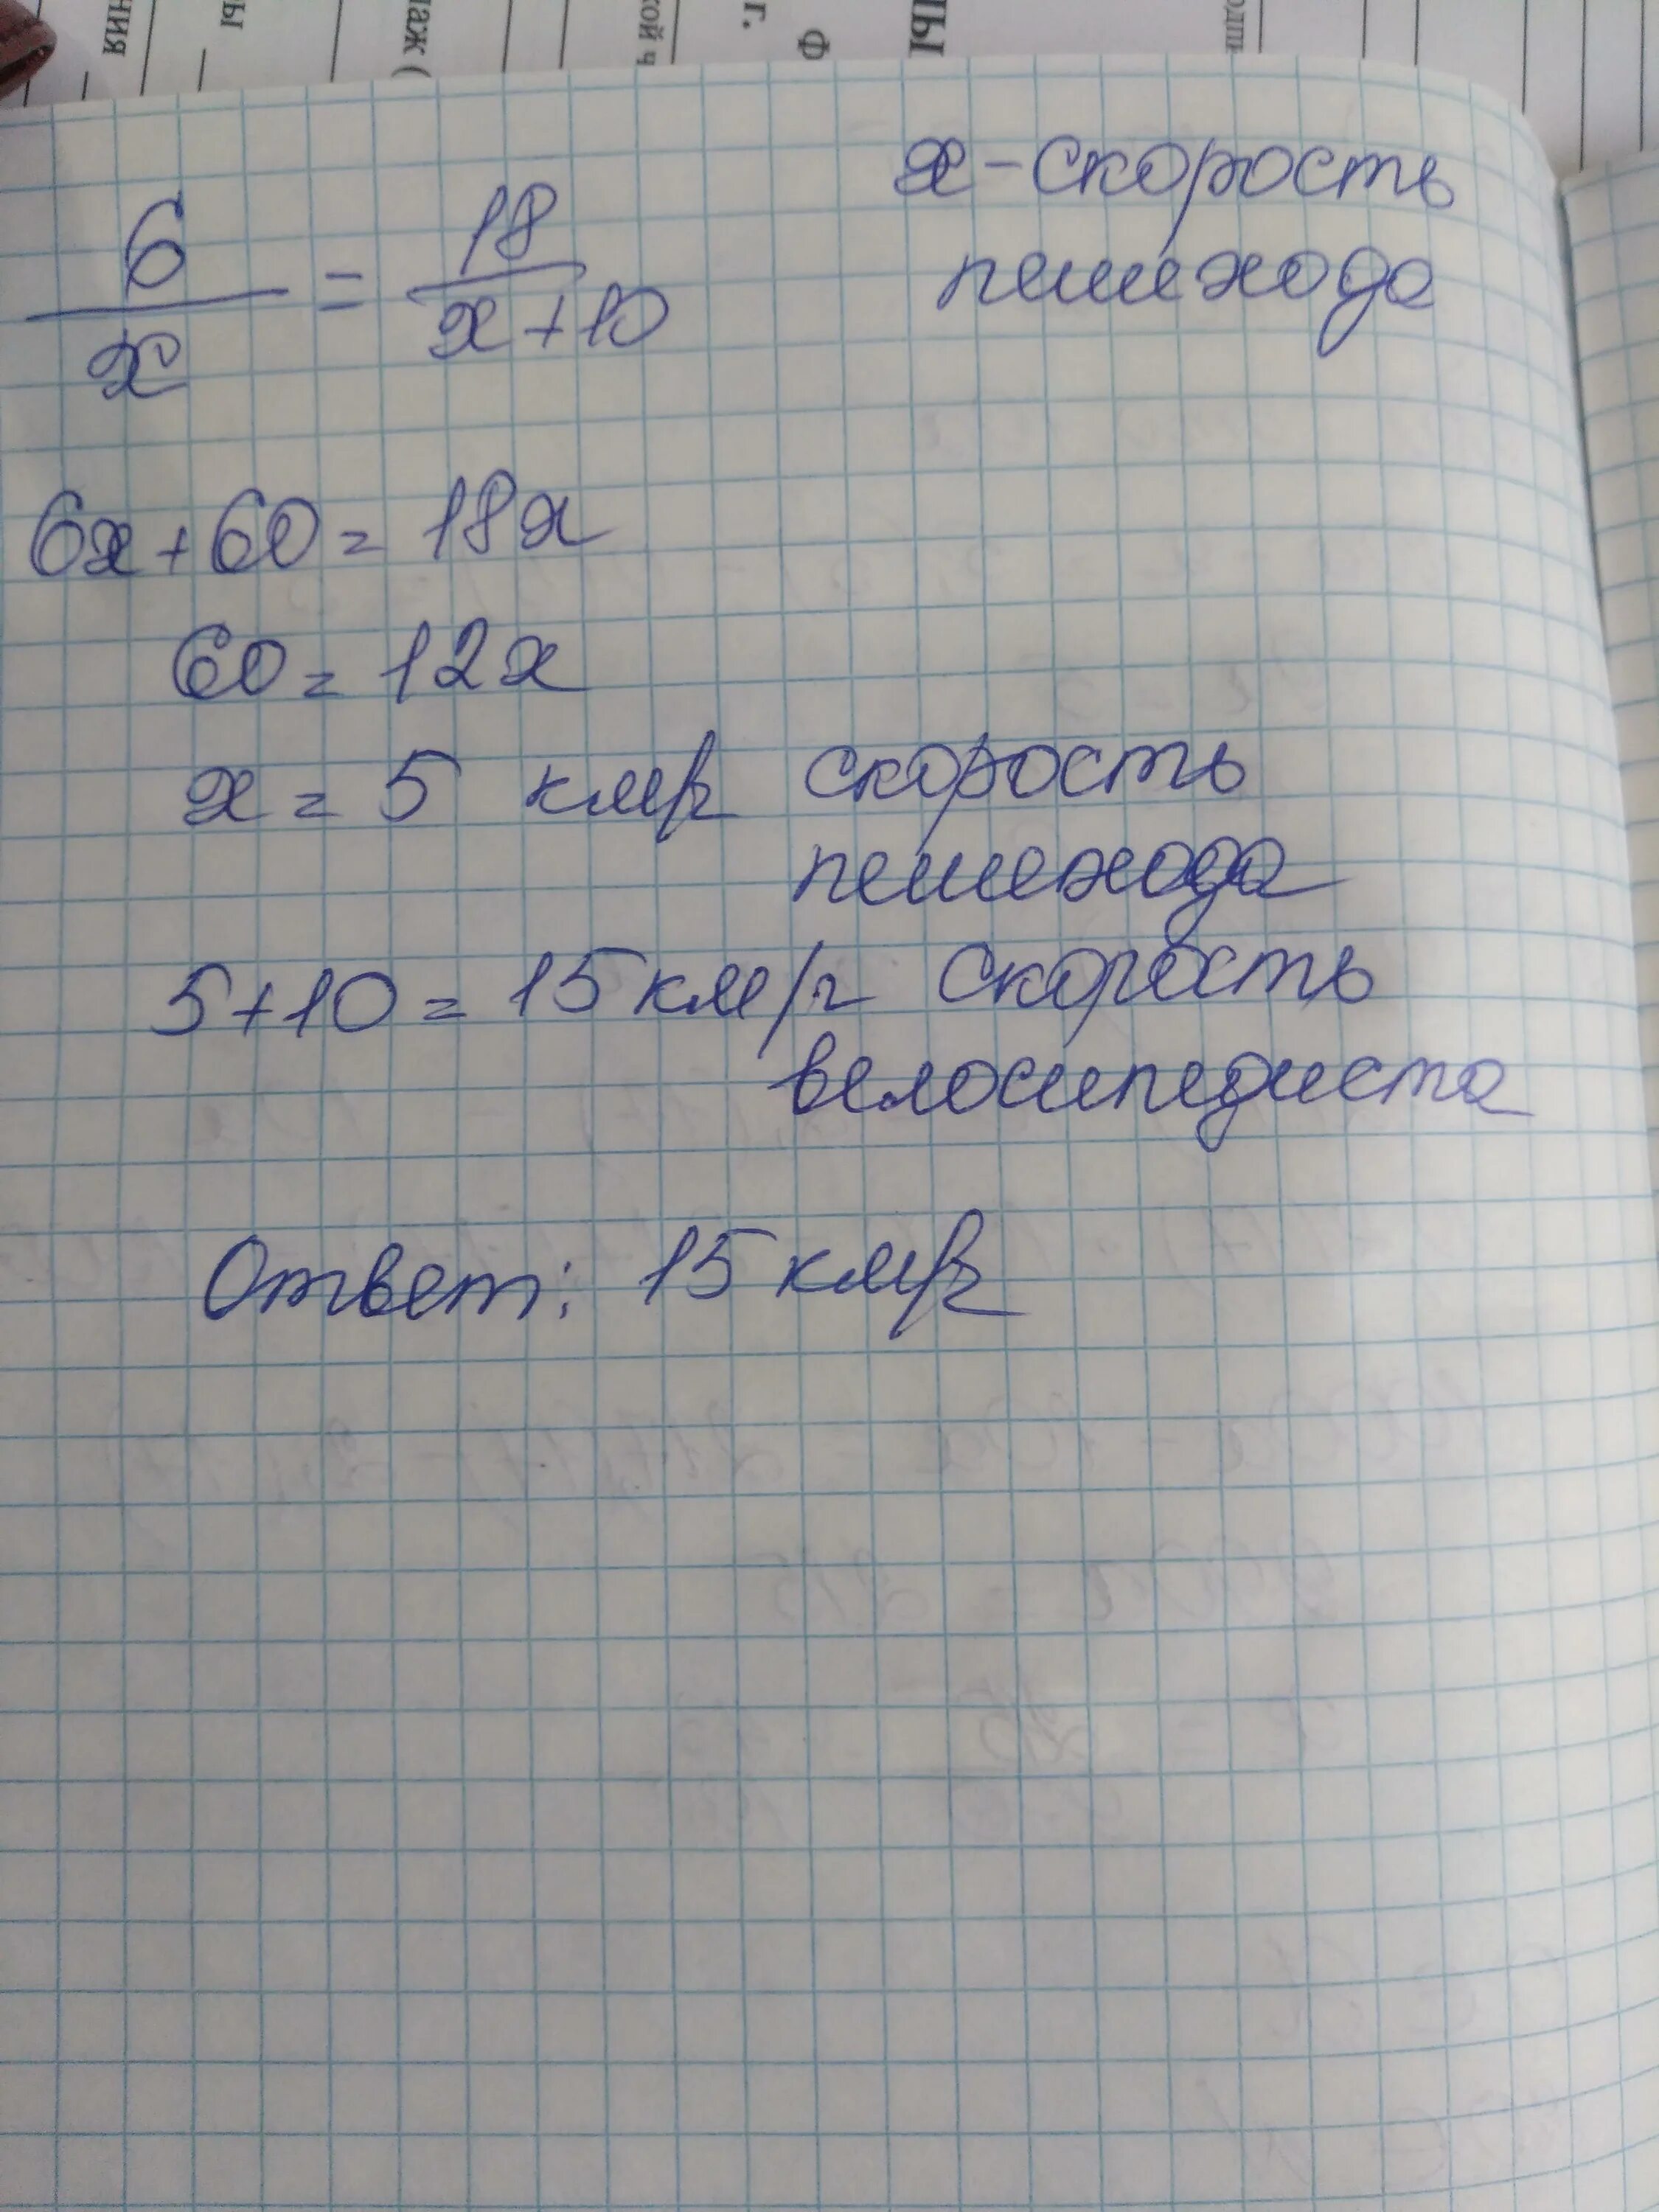 x - скорость
пешехода
6/x = 18/x+10
6x+60=18x
60=12x
x=5 км/ч скорость
пешехода
5+10=15 км/ч скорость
велосипедиста
Ответ: 15 км/ч